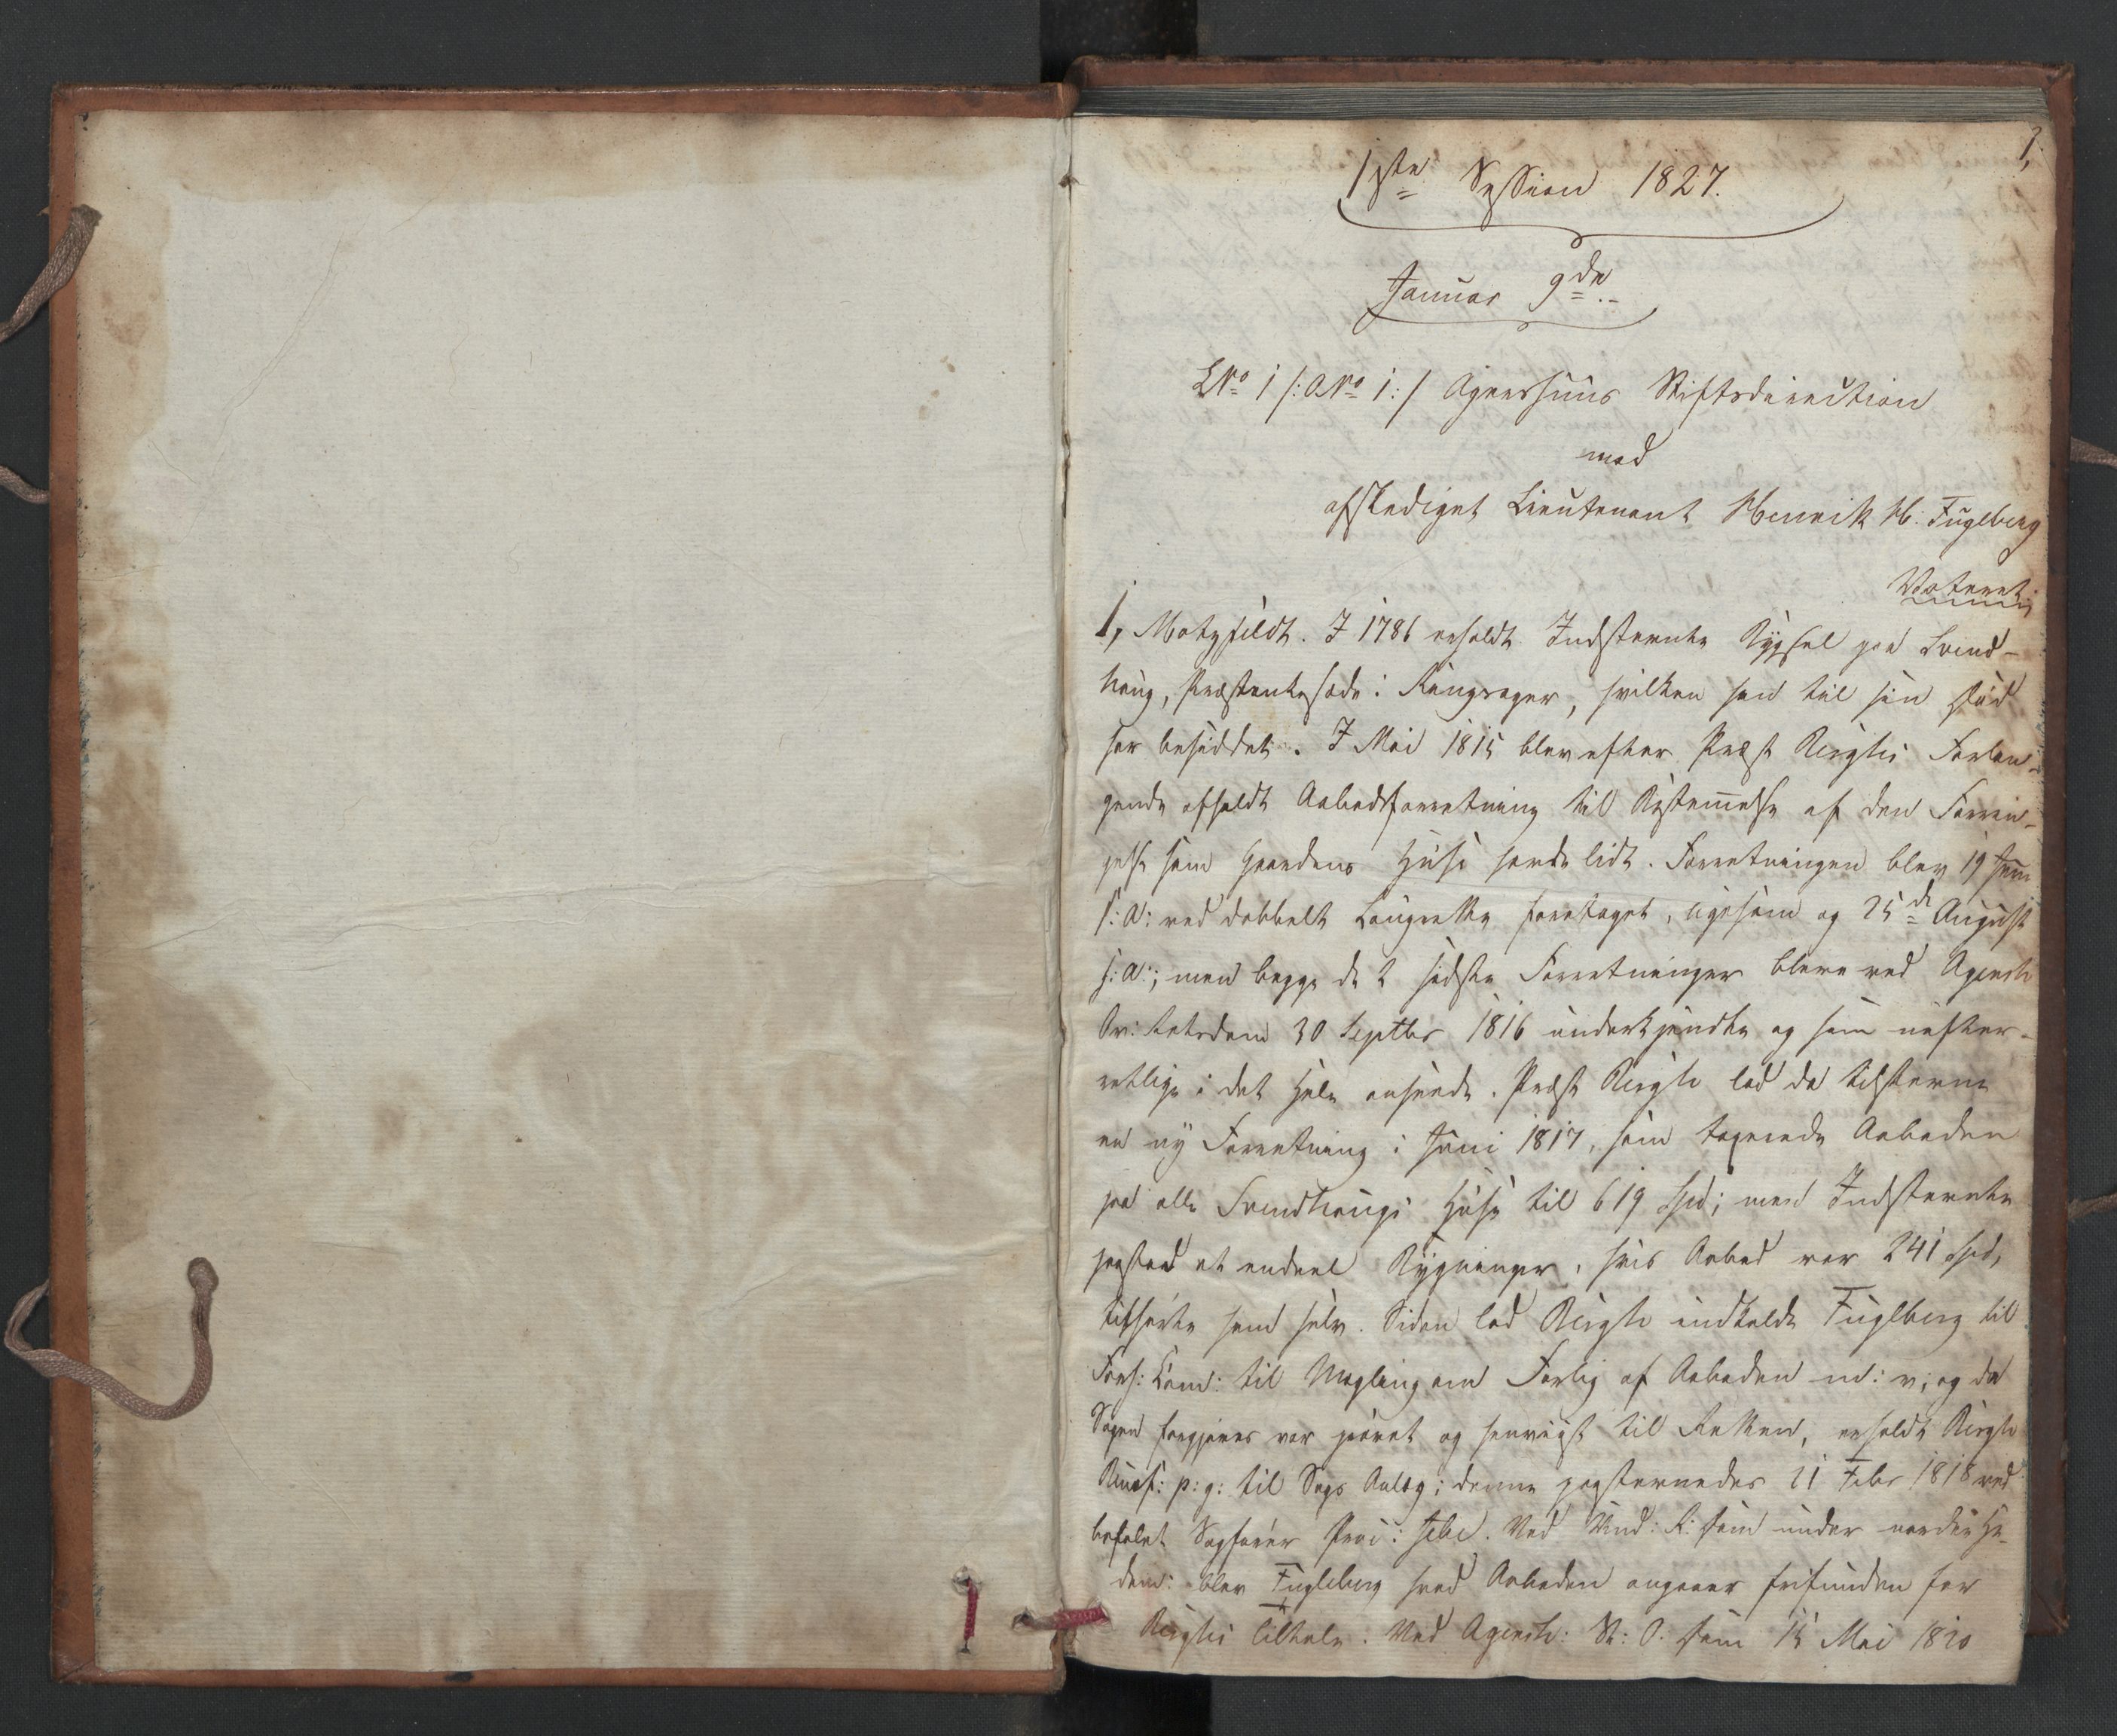 1,
1ste Session 1827.
Januar 9de
LNo 1 /: ANo 1:/ Agershuus Stiftsdirection
mod
afskediget Lieutenant Henrik H: Fuglberg
Voteret:
1, Motzfeldt. I 1786 erholdt Indstevnte Bygsel paa Svend-
houg, Præsteenkesæde i Ringsager, hvilken han til sin Død
har besiddet. I Mai 1815 blev efter Præst Berghs Forlan-
gende afholdt Aabodsforretning til Bestemmelse af den Forrin-
gelse som Gaardens Huse havde lidt. Forretningen blev 19 Juni
s: A: ved dobbelt Laugrette foretaget, ligesom og 25de August
s: A:; men begge de 2 sidste Forretninger bleve ved Agersh
Ov: Retsdom 30 Septbr 1816 underkjendte og som uefter-
retlige i det Hele anseede. Præst Bergh lod da tilstevne
en ny Forretning i Juni 1817, som taxerede Aaboden
paa alle Svendhougs Huse til 619 Spd; men Indstevnte
paastod at endeel Bygninger, hvis Aabod var 241 Spd,
tilhørte ham selv. Siden lod Bergh indkalde Fuglberg til
Forl: Com: til Mægling om Forlig af Aaboden m: v; og da
Sagen forgjeves var prøvet og henviist til Retten, erholdt Bergh
Benef: p: g: til Sags Anlæg; denne paastevnedes 21 Febr 1818 ved
befalet Sagfører Proc: . Ved Und: R: Dom
dom: blev Fuglberg hvad Aaboden angaaer frifunden for
Berghs Tiltale. Ved Agersh: St: O: Dom 15 Mai 1820